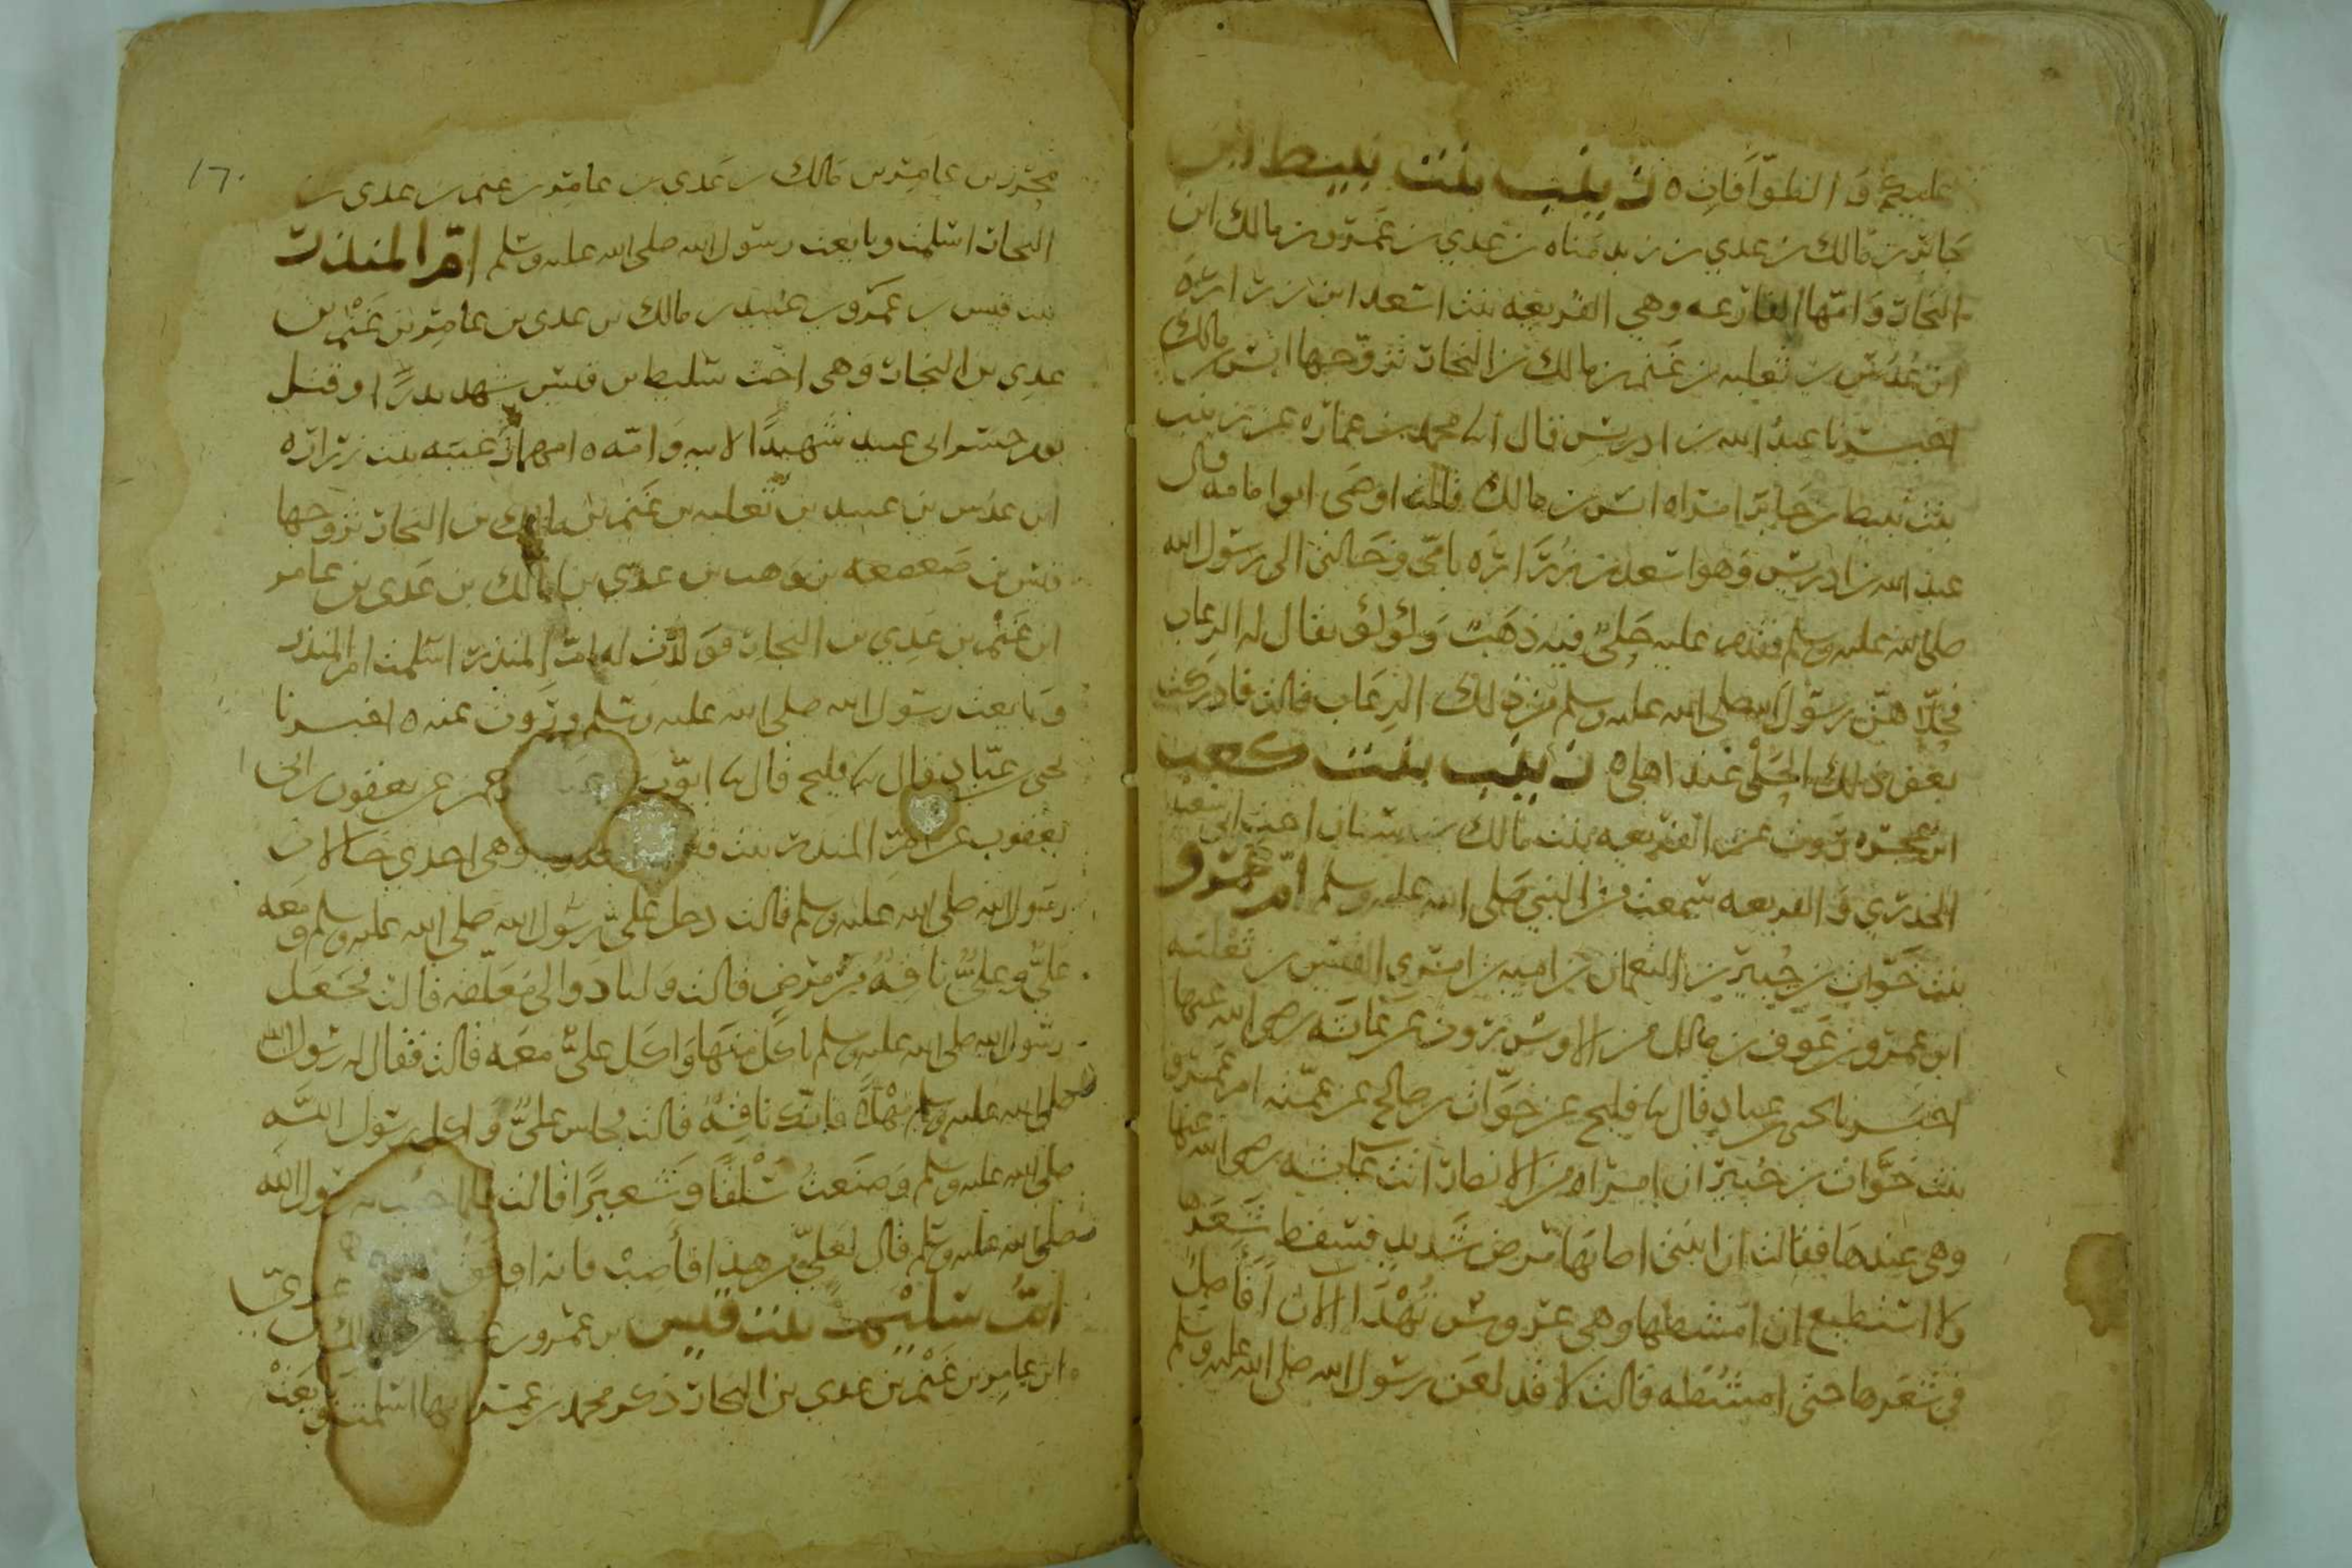 عليكم والطوافات ه زينب بنت نبيط ابن
جابر بن مالك بن عدي بن زيد مناه بن عدي بن عمرو بن مالك ابن
النجار وامها الفارعه وهي الفريعه بنت اسعد ابن زراره
ابن عدس بن ثعلبه بن غنم بن مالك بن النجار تزوجها انس بن مالك
اخبرنا عبد الله بن ادريس قال انا محمد بن عماره عن زينب
بنت نبيط بن جابر امراه انس بن مالك قالت اوصى ابو امامه قال
عبد الله بن ادريس وهو اسعد بن زراره بامي وخالتي الى رسول الله
صلى الله عليه وسلم فقدم عليه حلي فيه ذهب ولؤلؤ يقال له الرعاب
فحلاهن رسول الله صلى الله عليه وسلم من ذلك الرعاب قالت فادركت
بعض ذلك الحلي عند اهلي ه زينب بنت كعب
ابن عجره روت عن الفريعه بنت مالك بن سنان اخت ابي سعيد
الخدري والفريعه سمعت من النبي صلى الله عليه وسلم ام عمرو
بنت خوات بن جبير بن النعمان بن اميه بن امري القيس بن ثعلبه
ابن عمرو بن عوف بن مالك من الاوس تروي عن عائشه رضي الله عنها
اخبرنا يحيى بن عباد قال نا فليح عن خوات بن صالح عن عمته ام عمرو
بنت خوات بن جبير ان امراه من الانصار اتت عائشه رضي الله عنها
وهي عندها فقالت ان ابنتي اصابها مرض شديد فسقط شعرها
ولا استطيع ان امشطها وهي عروس تهدا الآن افاصل
في شعرها حتى امشطه قالت لا قد لعن رسول الله صلى الله عليه وسلم
١٦٠
محرز بن عامر بن مالك بن عدي بن عامر بن غنم بن عدي بن
النجار اسلمت وبايعت رسول الله صلى الله عليه وسلم ام المنذر
بنت قيس بن عمرو بن عبيد بن مالك بن عدي بن عامر بن غنم بن
عدي بن النجار وهي اخت سليط بن قيس شهد بدرا وقتل
يوم جسر ابي عبيد شهيدا لابيه وامه ه امهما زغيبه بنت زراره
ابن عدس بن عبيد بن ثعلبه بن غنم بن مالك بن النجار تزوجها
قيس بن صعصعه بن وهب بن عدي بن مالك بن عدي بن عامر
ابن غنم بن عدي بن النجار فولدت له المنذر اسلمت ام المنذر
وبايعت رسول الله صلى الله عليه وسلم وروت عنه ه اخبرنا
يحيى بن عباد قال نا فليح قال نا ايوب بن عن يعقوب بن ابي
يعقوب عن ام المنذر بنت وهي احدى خالات
رسول الله صلى الله عليه وسلم قالت دخل علي رسول الله صلى الله عليه وسلم ومعه
علي وعلي ناقه من مرض قالت ولنا دوالي معلقه قالت فجعل
رسول الله صلى الله عليه وسلم ياكل منها واكل علي معه قالت فقال له رسول الله
صلى الله عليه وسلم مهلا فانك ناقه قالت فجلس علي واكل رسول الله
صلى الله عليه وسلم وصنعت سلقا وشعيرا قالت فلما رسول الله
صلى الله عليه وسلم قال لعلي من هذا فاصب فانه
ام سليم بنت قيس بن عمرو بن بن عدي
ابن عامر بن غنم بن عدي بن النجار ذكر محمد بن عمر انها اسلمت وبايعت